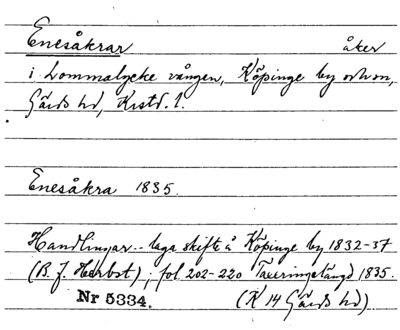 Enesåkrar åker
i Lommalycke vången, Köpinge by och sn,
Gärds hd, Krstd. l.
Enesåkra 1835.
Handlingar .. laga skifte å Köpinge by 1832-37
(B. J. Herbst); fol 202-220 Taxeringslängd 1835.
Nr 5334. (K 14 Gärds hd)